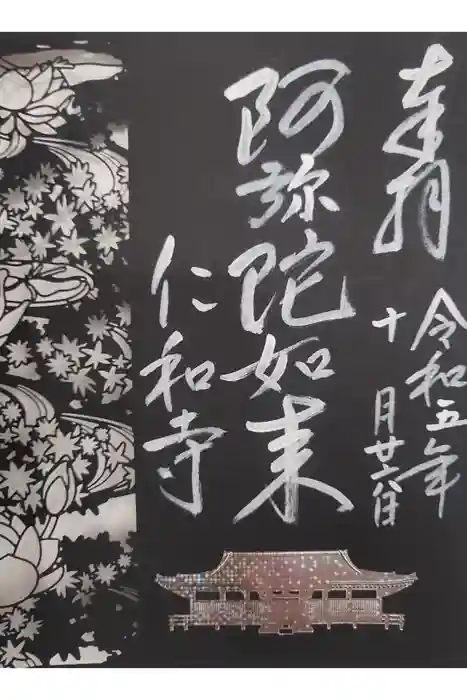 奉拝
令和五年
十月廿六日
阿弥陀如来
仁和寺